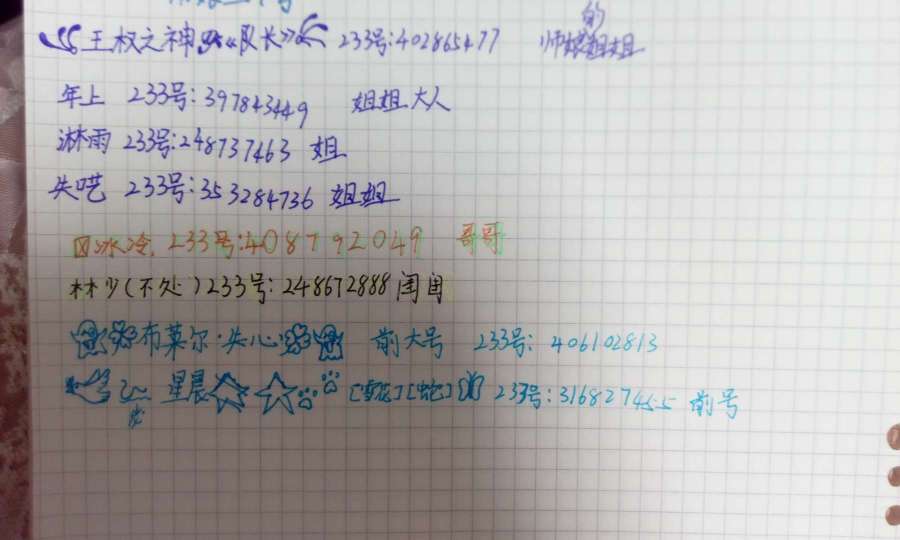 王权之神 《队长》 233号:402865477 的师嫂姐姐
年上 233号:397843449 姐姐大人
淋雨 233号:248737463 姐
失呓 233号:353284736 姐姐
冰冷. 233号:408792049 哥哥
林少(不处)233号:248672888 闺闺
布莱尔·失心 前大号 233号: 406102813
星晨 [雪花][蛇] 233号:316827455 前号